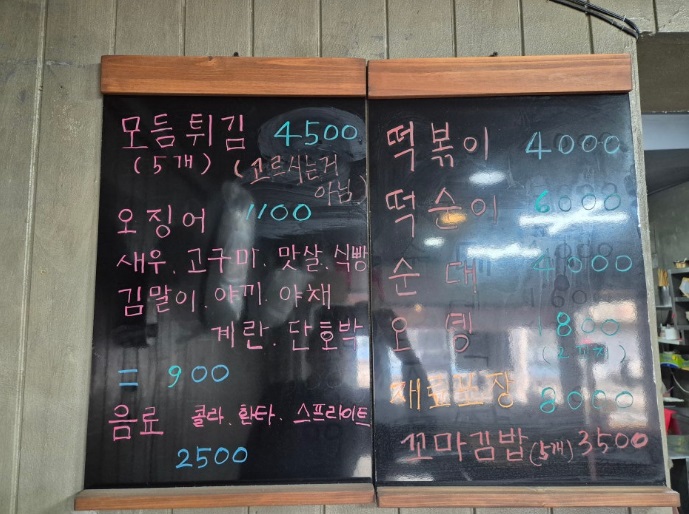 모듬튀김 4500
(5개) (고르시는거
아님)
오징어 1100
새우. 고구마. 맛살. 식빵
김말이 야끼. 야채
계란. 단호박
= 900
음료 콜라. 환타. 스프라이트
2500
떡볶이 4000
떡순이 6000
순대 4000
오뎅 1800
꼬마김밥 (5개) 3500